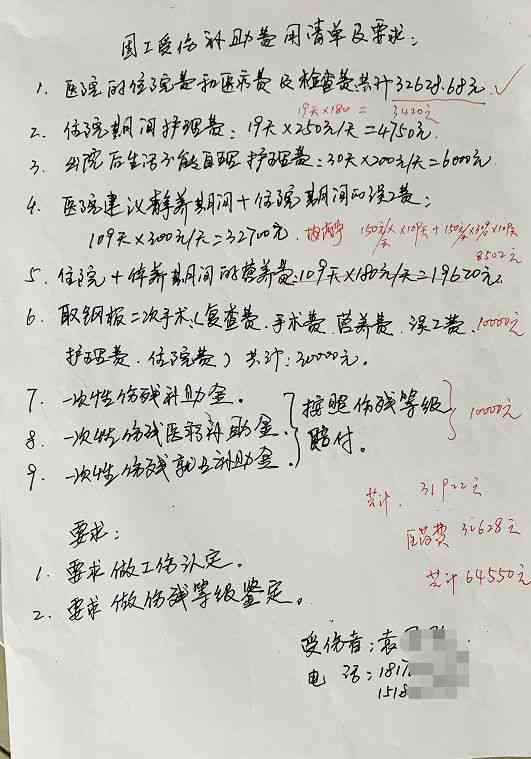 因工受伤补助费用清单及要求：
1. 医院的住院费和医疗费及检查费共计32628.68元 ✓
19天×180= 3420元
2. 住院期间护理费：19天×250元/天=4750元.
3. 出院后生活不能自理护理费：30天×200元/天=6000元
4. 医院建议静养期间+住院期间的误工费：
109天×300元/天=32700元.
150元/天×109天+150元/天×
8502元
5. 住院+休养期间的营养费：109天×180元/天=19620元.
6. 取钢板二次手术（复查费.手术费.营养费.误工费. 10000元
护理费.住院费）共计：30000元.
7. 一次性伤残补助金.
8. 一次性伤残医疗补助金.
9. 一次性伤残就业补助金.
按照伤残等级
赔付.
10000元
共计. 31922元
医药费 32628元
共计64550元
要求：
1. 要求做工伤认定.
2. 要求做伤残等级鉴定.
受伤者：袁
电 话：1817
1518